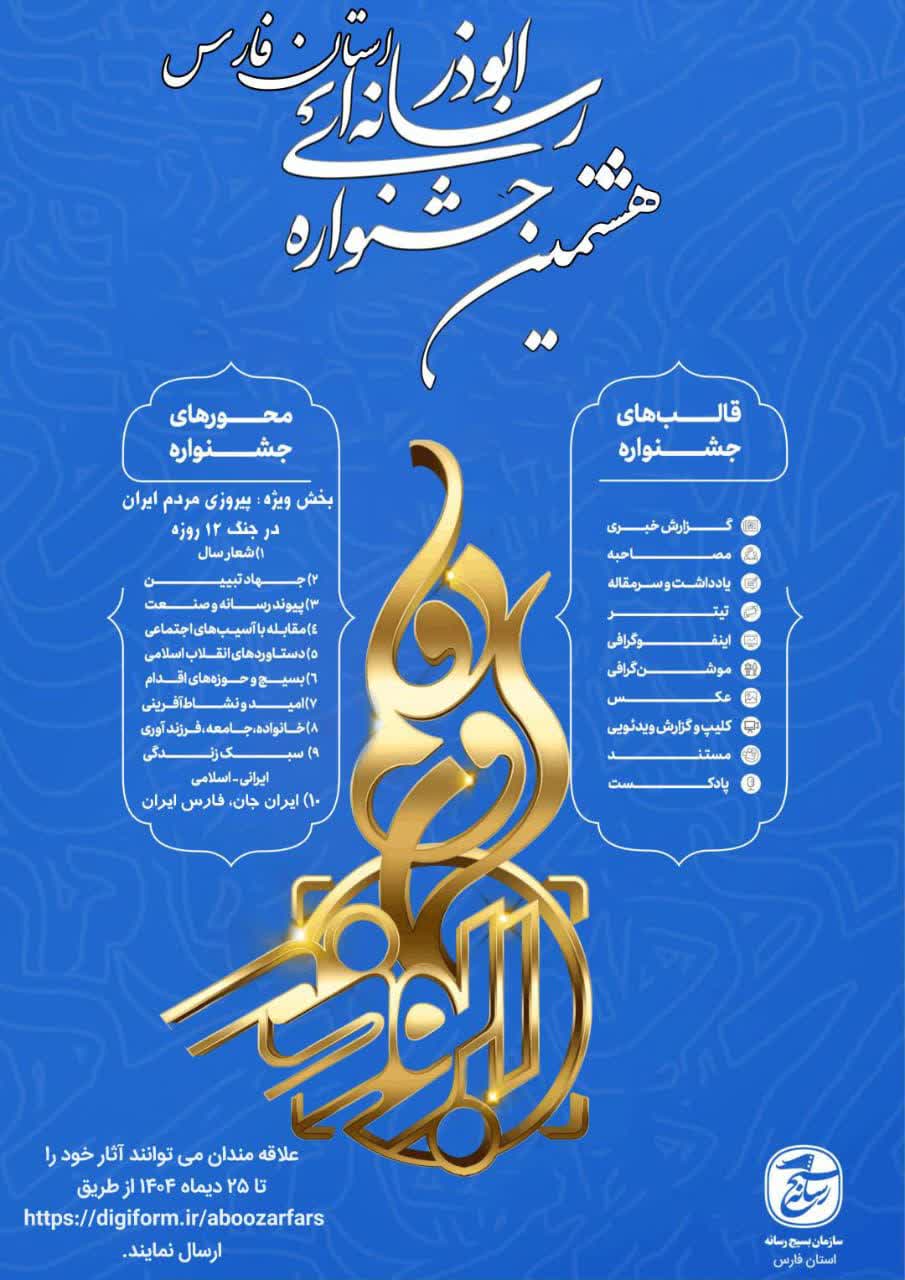 هشتمین جشنواره
رسانه‌ای ابوذر
استان فارس
قالب‌های
جشنواره
گزارش خبری
مصاحبه
یادداشت و سرمقاله
تیتر
اینفوگرافی
موشن‌گرافی
عکس
کلیپ و گزارش ویدئویی
مستند
پادکست
محورهای
جشنواره
بخش ویژه : پیروزی مردم ایران
در جنگ ۱۲ روزه
۱) شعار سال
۲) جهاد تبیین
۳) پیوند رسانه و صنعت
٤) مقابله با آسیب‌های اجتماعی
٥) دستاوردهای انقلاب اسلامی
٦) بسیج و حوزه‌های اقدام
۷) امید و نشاط‌آفرینی
۸) خانواده، جامعه، فرزندآوری
۹) سبک زندگی
ایرانی - اسلامی
۱۰) ایران جان، فارس ایران
علاقه مندان می توانند آثار خود را
تا ۲۵ دیماه ۱۴۰۴ از طریق
https://digiform.ir/aboozarfars
ارسال نمایند.
بسیج
رسانه
سازمان بسیج رسانه
استان فارس